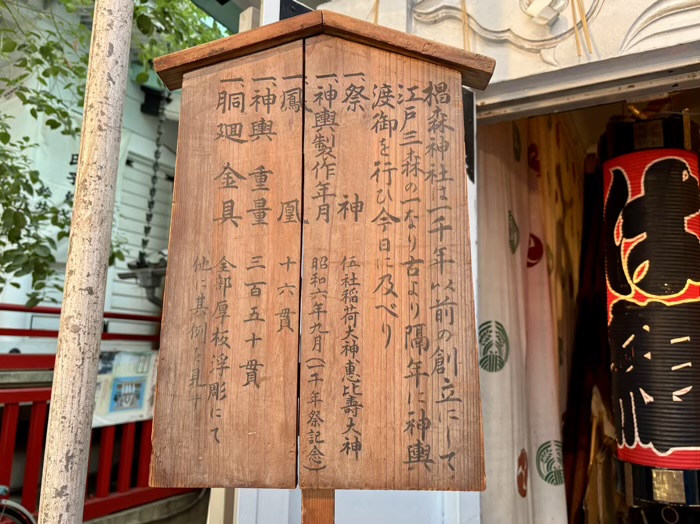 椙森神社は一千年以前の創立にして、
江戸三森の一なり古より隔年に神輿
渡御を行ひ今日に及べり
一、祭神 伍社稲荷大神恵比寿大神
一、神輿製作年月 昭和六年九月(一千年祭記念)
一、鳳凰 十六貫
一、神輿重量 三百五十貫
一、胴廻金具 全部厚板浮彫にて
他に其例を見ず